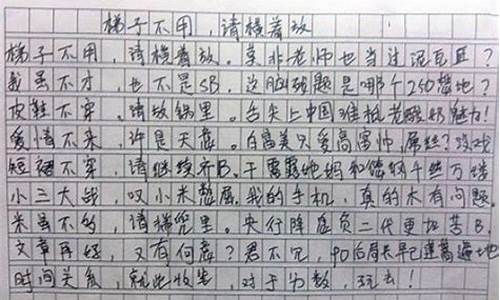 梯子不用，请横着放
梯子不用，请横着放。莫非老师也当过泥瓦匠？
我虽不才，也不是SB。这脑残题是哪个250蒙地？
皮鞋不穿，请放锅里。舌尖上中国难抵老酸奶魅力！
爱情不来，许是天意。白富美只爱高富帅，屌丝？
短裙不穿，请继续齐B。干露露她妈和你
小三大战 叹小米 我的手机，真的木有问题。
米虽不多，请揣兜里。央行降息负二代更加苦B。
文章再好，又有何意？君不见，90后局长早已遍地
时间关系，就此收笔，对于分数，玩去！